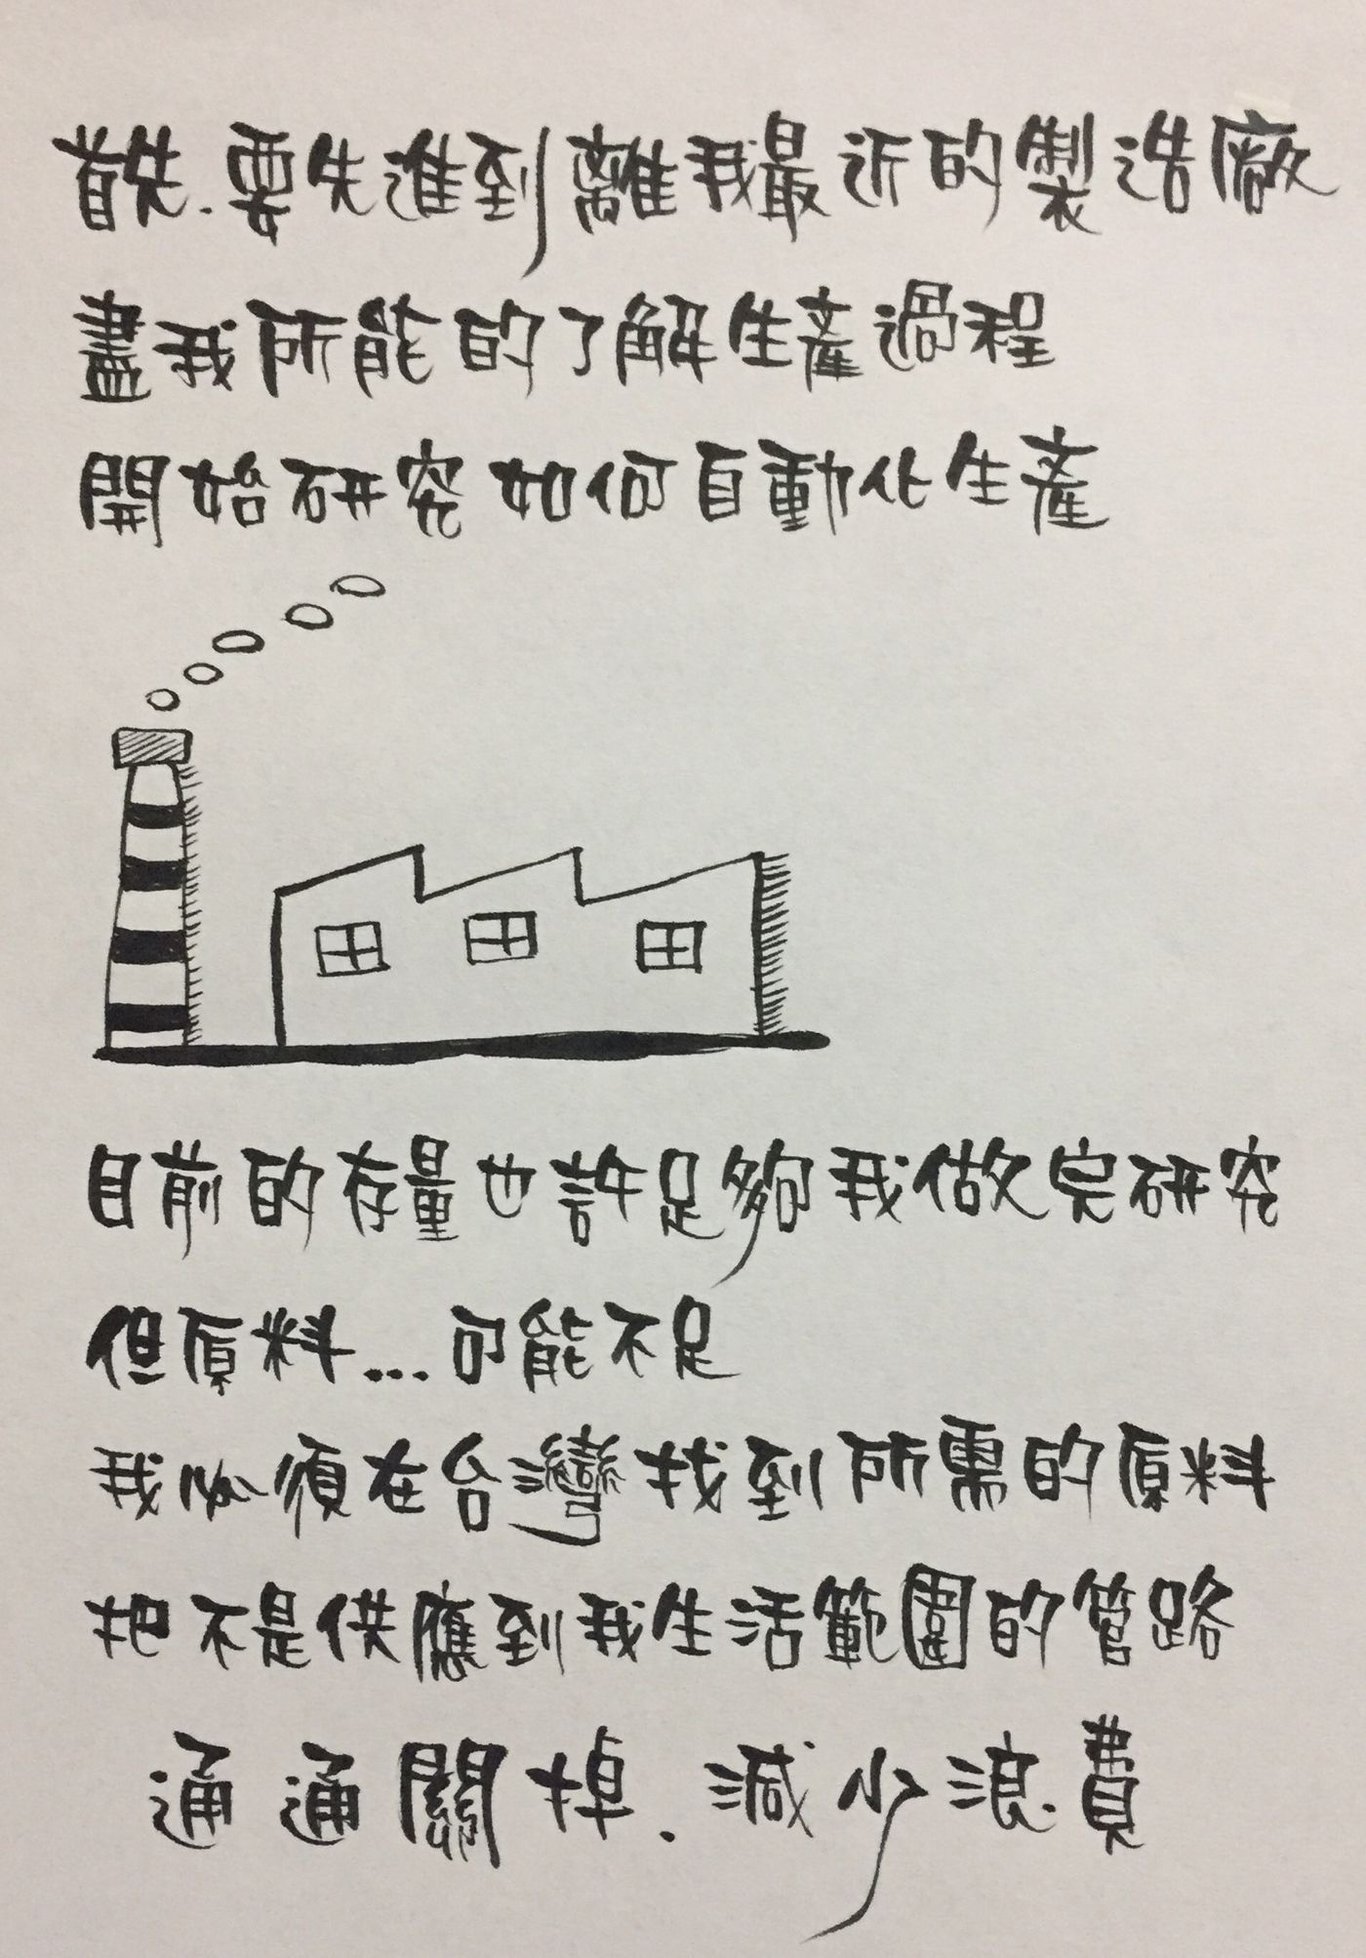 首先.要先進到離我最近的製造廠
盡我所能的了解生產過程
開始研究如何自動化生產
目前的存量也許足夠我做完研究
但原料...可能不足
我必須在台灣找到所需的原料
把不是供應到我生活範圍的管路
通通關掉.減少浪費